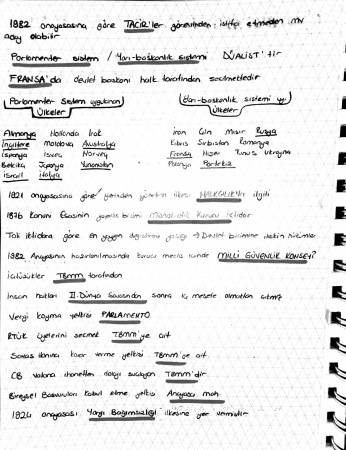 1982 anayasasına göre TACİR'ler görevinden istifa etmeden mv
aday olabilir
Parlamenter sistem / Yarı-başkanlık sistemi DÜALİST'tir
FRANSA'da devlet başkanı halk tarafından seçilmektedir
Parlamenter Sistem uygulanan Ülkeler
Yarı-başkanlık sistemi uy. Ülkeler
Almanya Hollanda Irak
İngiltere Moldova Avustralya
İspanya İsveç Norveç
Belçika Japonya Yunanistan
İsrail İtalya
İran Çin Mısır Rusya
Kıbrıs Sırbistan Romanya
Fransa Nijer Tunus Ukrayna
Polonya Portekiz
1921 anayasasına göre yerinden yönetim ilkesi HALKÇILIK'la ilgili
1876 Kanuni Esasinin yapılış biçimi Monarşik Kurucu
Tek iktidara göre en yaygın değiştirme yasağı → Devlet biçimine ilişkin hükümler
1982 Anayasanın hazırlanmasında kurucu meclis içinde MİLLİ GÜVENLİK KONSEYİ
İçtüzükler TBMM tarafından
İnsan hakları II.Dünya Savaşından sonra iç mesele olmaktan çıkmış
Vergi koyma yetkisi PARLAMENTO
RTÜK üyelerini seçmek TBMM'ye ait
Savaş ilanına karar verme yetkisi TBMM'ye ait
CB vatana ihanetten dolayı suçlayan TBMM'dir
Bireysel Başvuruları kabul etme yetkisi Anayasa mah.
1924 anayasası Yargı Bağımsızlığı ilkesine yer vermiştir